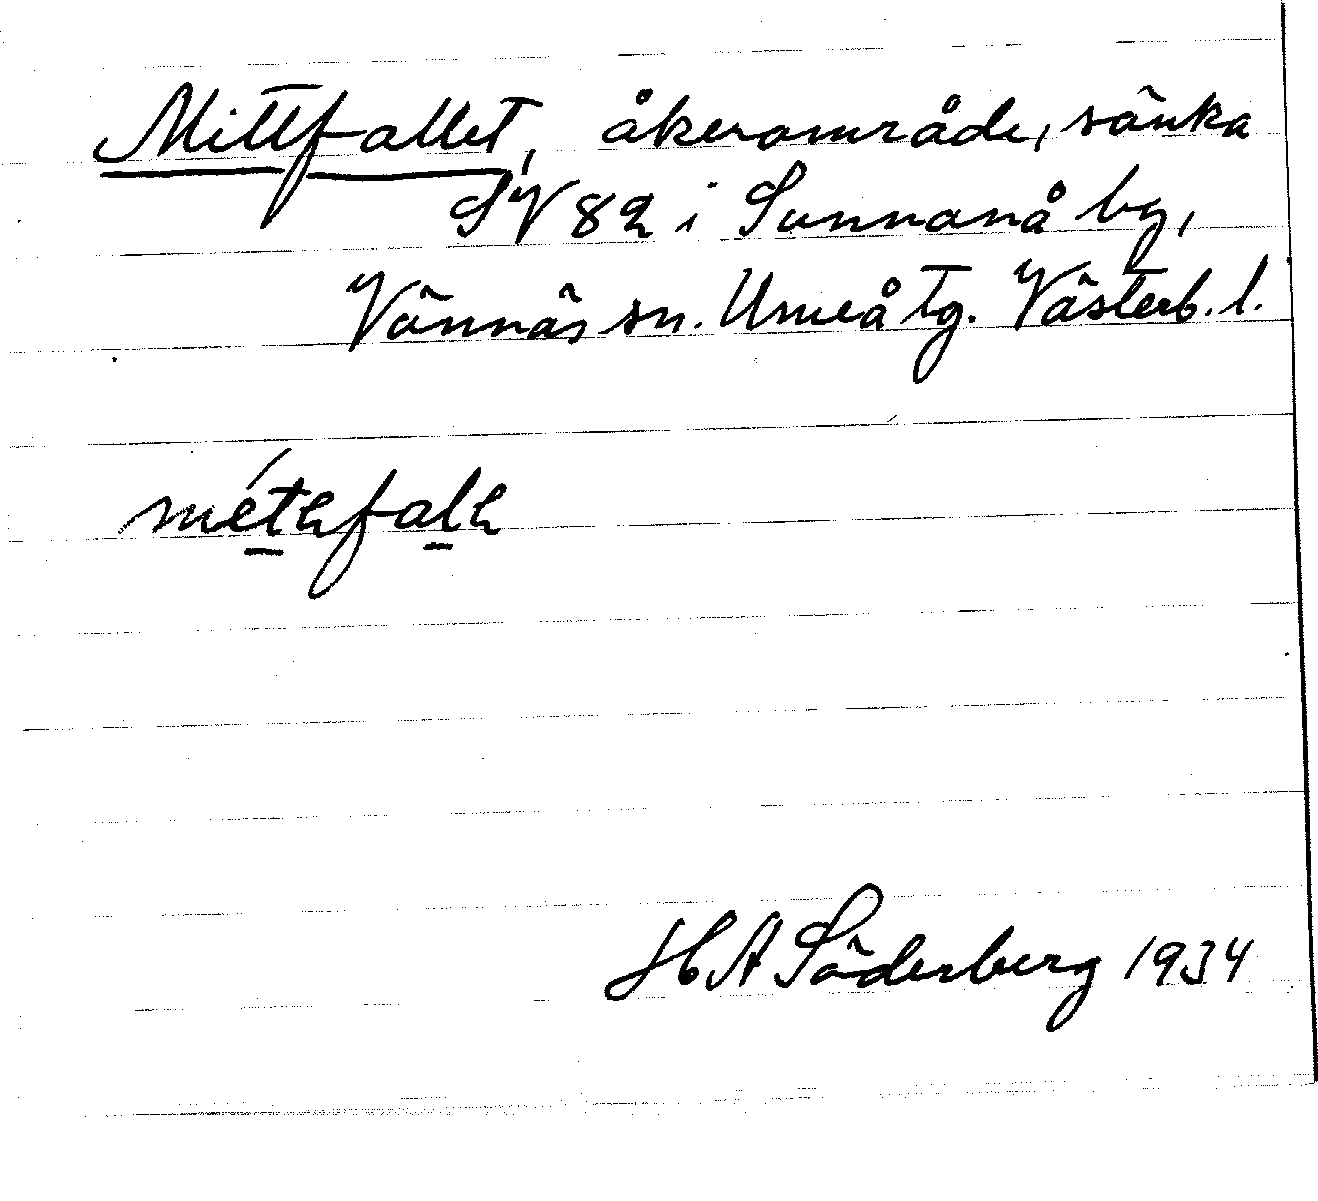 Mittfallet, åkerområde, sänka
SV 82 i Sunnanå by,
Vännäs sn. Umeå tg. Västerb. l.
H A Söderberg 1934